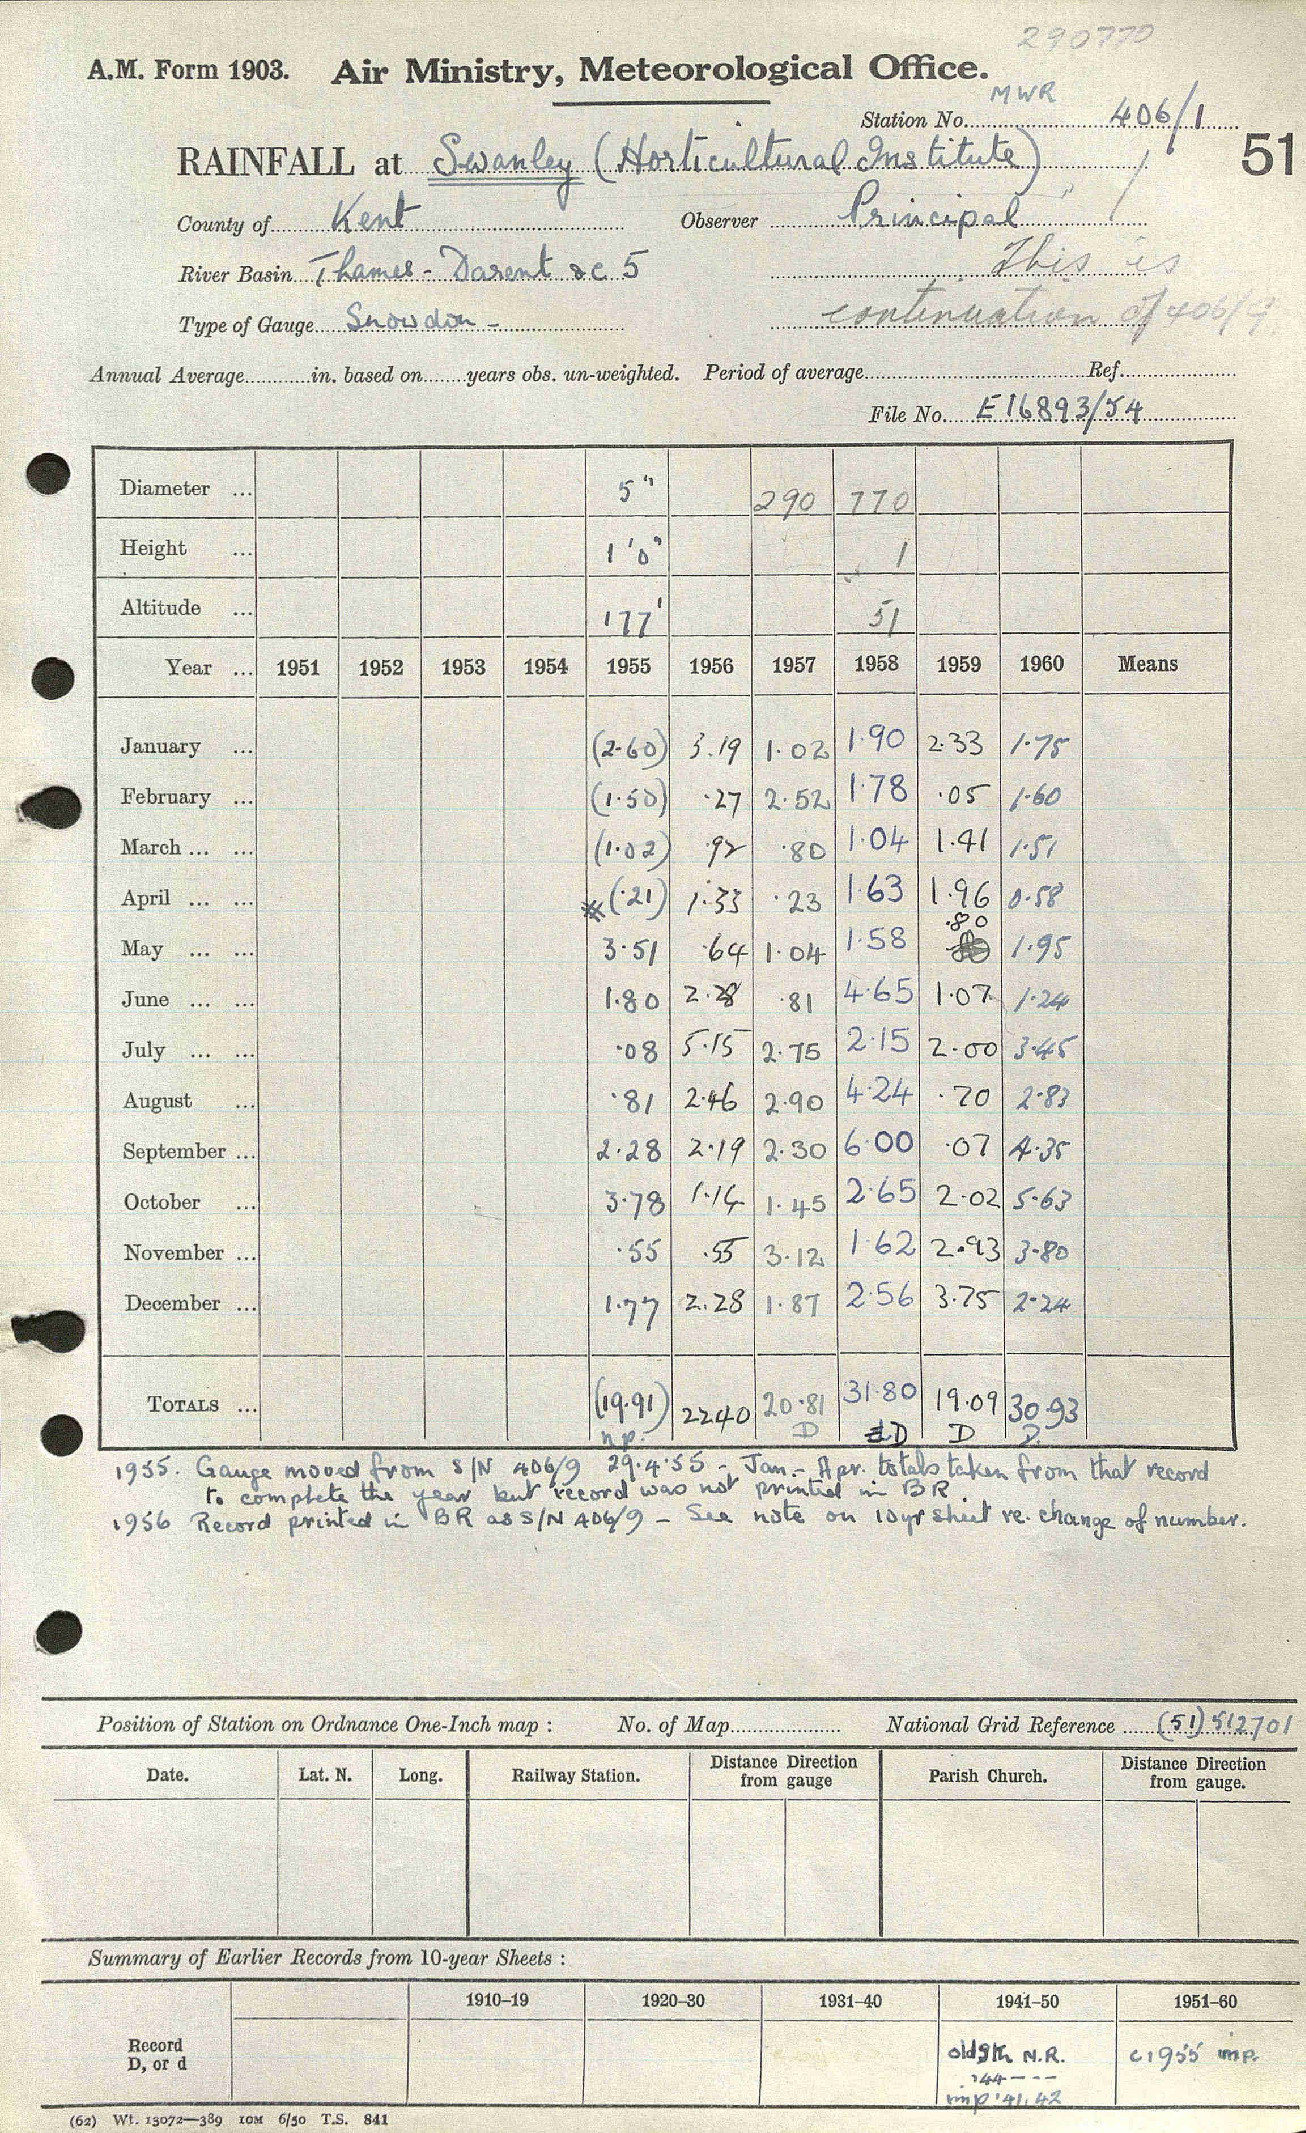 290770
A.M. Form 1903. Air Ministry, Meteorological Office.
MWR
Station No. 406/1
51
RAINFALL at Swanley (Horticultural Institute)
County of Kent Observer Principal
River Basin Thames - Darent &c 5 This is
Type of Gauge Snowdon - continuation of 406/9
Annual Average in. based on years obs. un-weighted. Period of average Ref.
File No. E16893/54
Diameter ... 5" 290 770
Height ... 1'0" 1
Altitude ... 177' 51
Year ... 1951 1952 1953 1954 1955 1956 1957 1958 1959 1960 Means
January ... (2.60) 3.19 1.02 1.90 2.33 1.75
February ... (1.50) .27 2.52 1.78 .05 1.60
March ... ... (1.02) .92 .80 1.04 1.41 1.51
April ... ... *(.21) 1.33 .23 1.63 1.96 0.58
May ... ... 3.51 .64 1.04 1.58 .80 1.95
June ... ... 1.80 2.28 .81 4.65 1.07 1.24
July ... ... .08 5.15 2.75 2.15 2.00 3.45
August ... .81 2.46 2.90 4.24 .70 2.83
September ... 2.28 2.19 2.30 6.00 .07 4.35
October ... 3.78 1.14 1.45 2.65 2.02 5.63
November ... .55 .55 3.12 1.62 2.93 3.80
December ... 1.77 2.28 1.87 2.56 3.75 2.24
TOTALS ... (19.91) 22.40 20.81 31.80 19.09 30.93
n.p. D D D D.
1955. Gauge moved from S/N 406/9 29.4.55 - Jan. - Apr. totals taken from that record
to complete the year but record was not printed in BR.
1956 Record printed in BR as S/N 406/9 - See note on 10yr sheet re. change of number.
Position of Station on Ordnance One-Inch map : No. of Map National Grid Reference (51) 512701
Date. Lat. N. Long. Railway Station. Distance Direction from gauge Parish Church. Distance Direction from gauge.
Summary of Earlier Records from 10-year Sheets :
1910–19 1920–30 1931–40 1941–50 1951–60
Record
D, or d
old Stn N.R. c1955 imp.
'44 - - -
imp '41, 42
(62) Wt. 13072—389 10M 6/50 T.S. 841